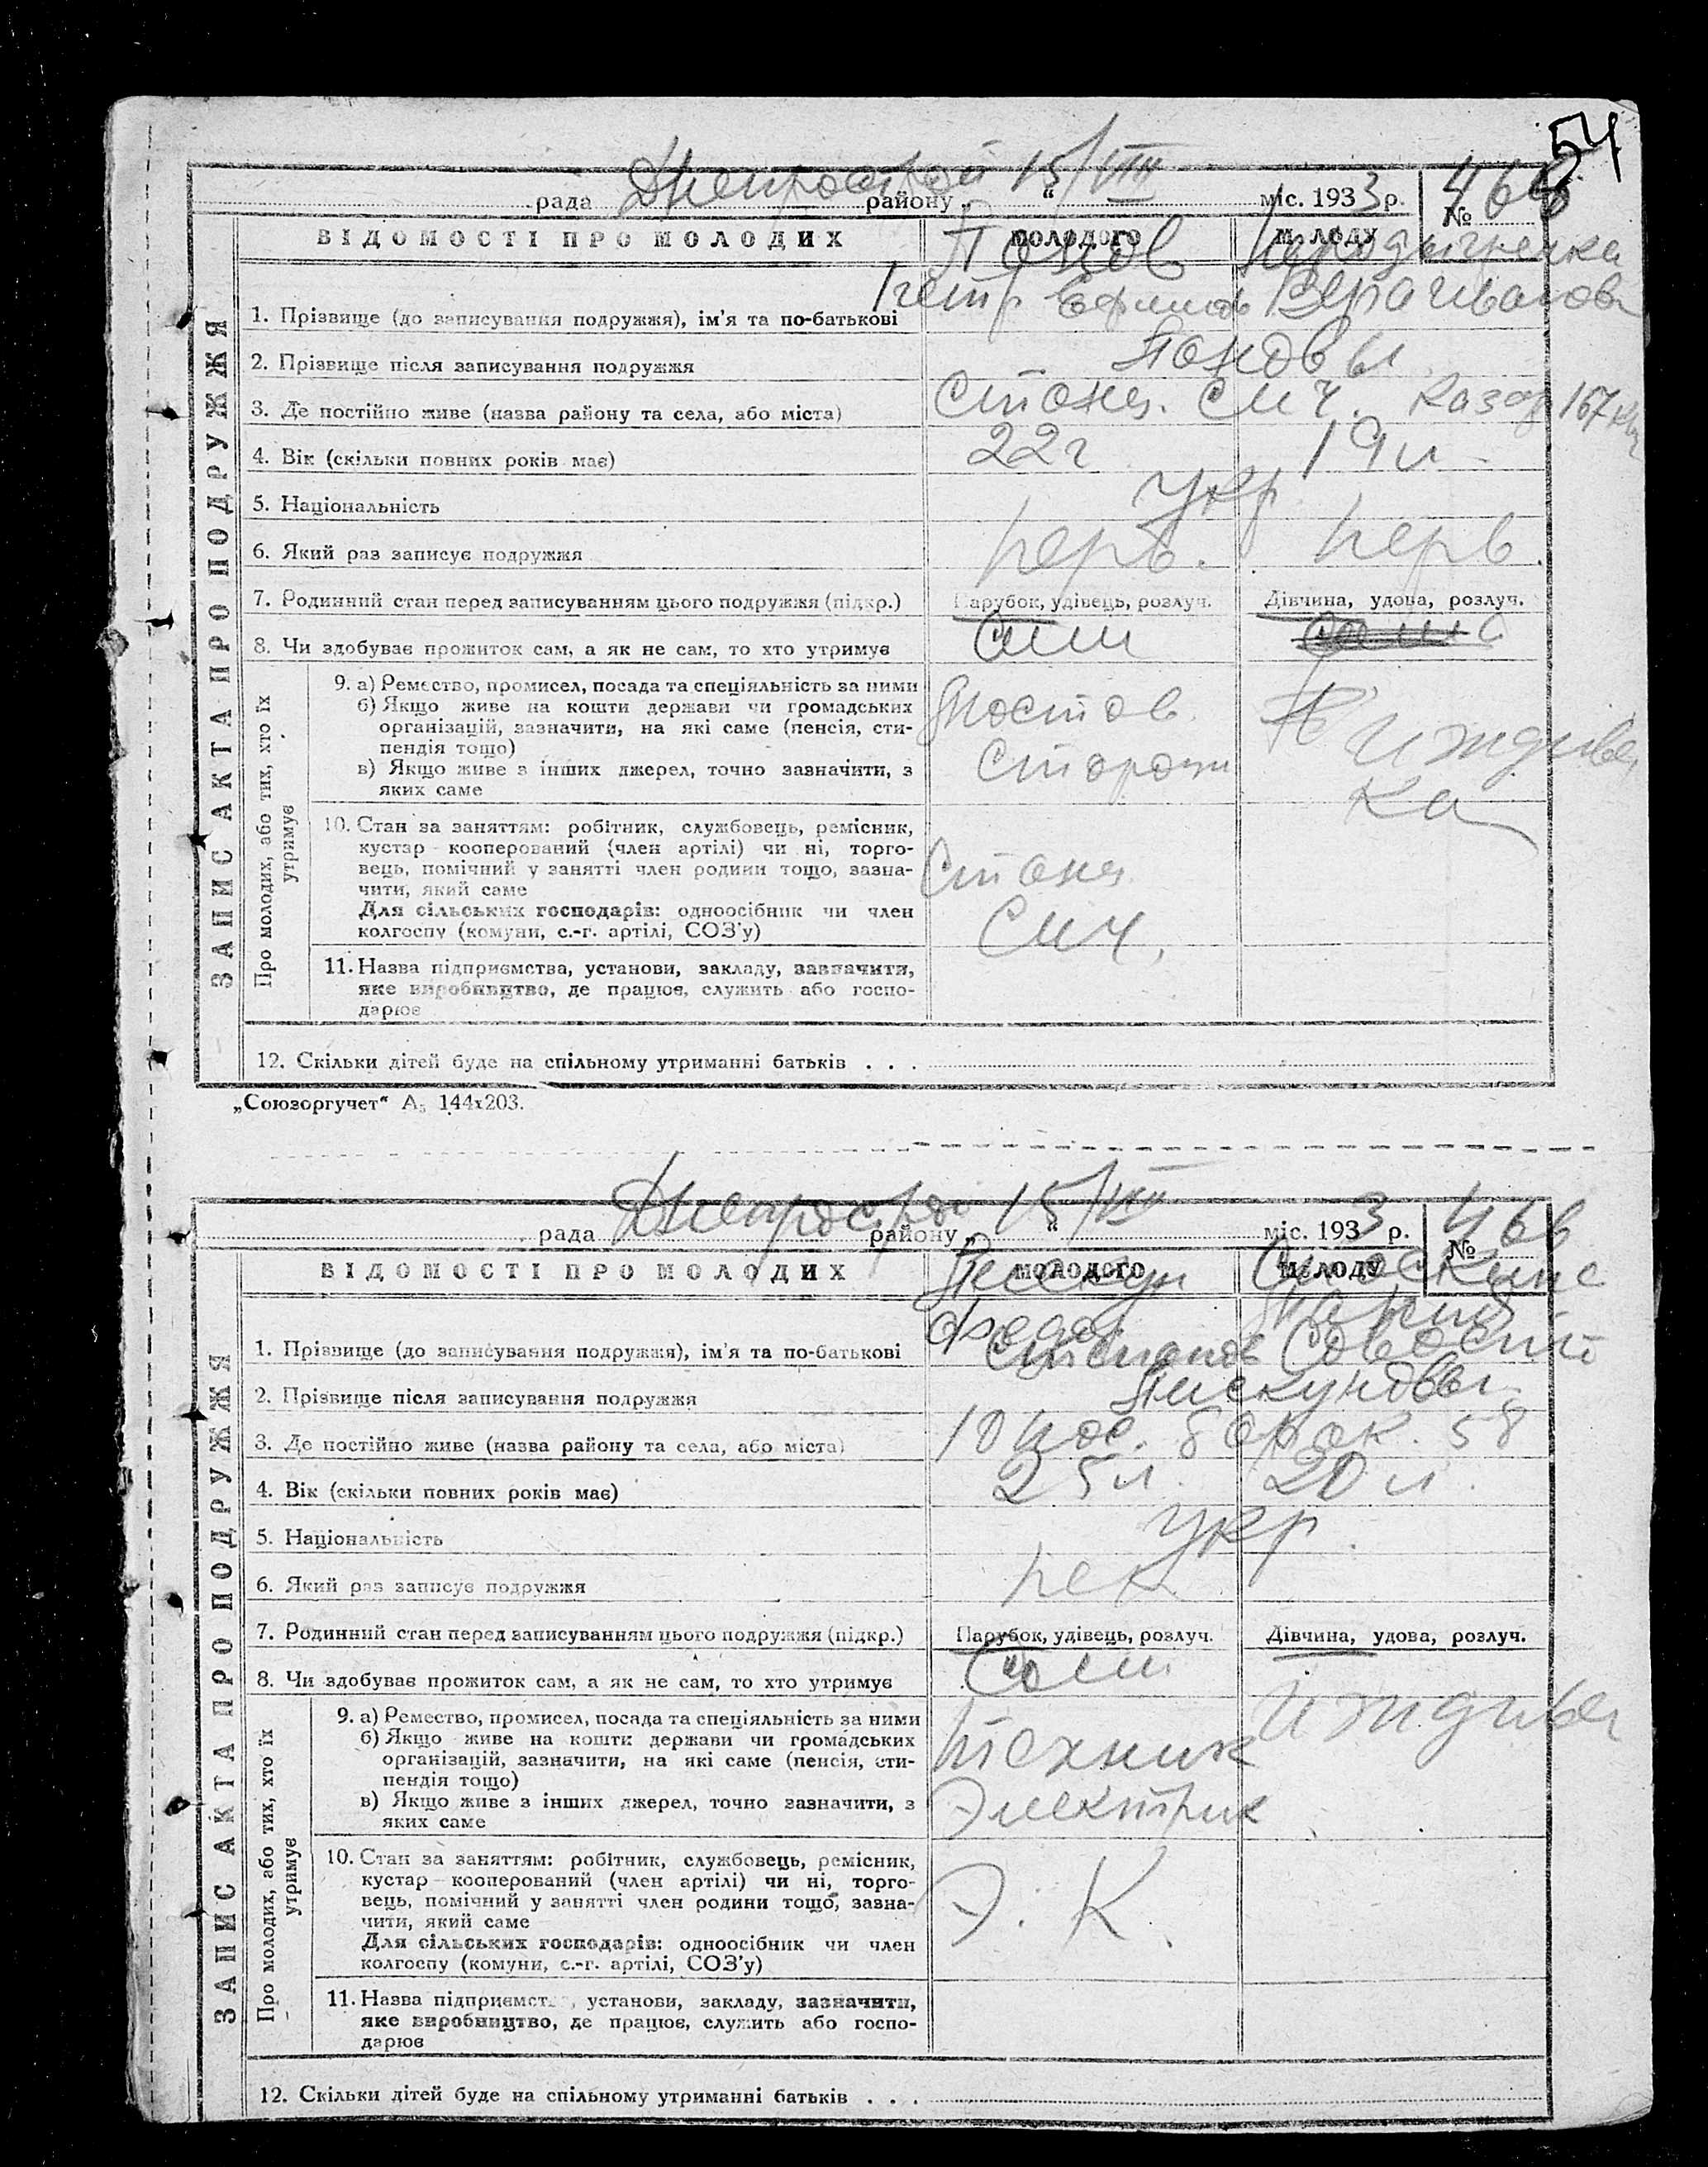 54
рада Днепрострой району „ 15/VIII “ міс. 1933 р. № 466
ВІДОМОСТІ ПРО МОЛОДИХ МОЛОДОГО МОЛОДУ
ЗАПИС АКТА ПРО ПОДРУЖЖЯ
1. Прізвище (до записування подружжя), ім'я та по-батькові Петр Ефимов Вера Иванов
2. Прізвище після записування подружжя
3. Де постійно живе (назва району та села, або міста) С М Ч. 167 кв
4. Вік (скільки повних років має) 22 г 19 л.
5. Національність укр.
6. Який раз записує подружжя перв. перв.
7. Родинний стан перед записуванням цього подружжя (підкр.) Парубок, удівець, розлуч. Дівчина, удова, розлуч.
8. Чи здобуває прожиток сам, а як не сам, то хто утримує сам
Про молодих, або тих, хто їх утримує
9. а) Ремество, промисел, посада та спеціяльність за ними
б) Якщо живе на кошти держави чи громадських
організацій, зазначити, на які саме (пенсія, сти-
пендія тощо)
в) Якщо живе з інших джерел, точно зазначити, з
яких саме
Иждивен
ка
10. Стан за заняттям: робітник, службовець, ремісник,
кустар кооперований (член артілі) чи ні, торго-
вець, помічний у занятті член родини тощо, зазна-
чити, який саме
Для сільських господарів: одноосібник чи член
колгоспу (комуни, с.-г. артілі, СОЗ'у)
СМЧ.
11. Назва підприємства, установи, закладу, зазначити,
яке виробництво, де працює, служить або госпо-
дарює
12. Скільки дітей буде на спільному утриманні батьків . . .
„Союзоргучет“ А5 144х203.
рада Днепрострой району „ 15/VIII “ міс. 1933 р. № 466
ВІДОМОСТІ ПРО МОЛОДИХ МОЛОДОГО МОЛОДУ
ЗАПИС АКТА ПРО ПОДРУЖЖЯ
Федор
1. Прізвище (до записування подружжя), ім'я та по-батькові Степанов
2. Прізвище після записування подружжя Пискуновы
3. Де постійно живе (назва району та села, або міста) 10 пос. барак. 58
4. Вік (скільки повних років має) 25 л. 20 л.
5. Національність укр.
6. Який раз записує подружжя
7. Родинний стан перед записуванням цього подружжя (підкр.) Парубок, удівець, розлуч. Дівчина, удова, розлуч.
8. Чи здобуває прожиток сам, а як не сам, то хто утримує Сам
Про молодих, або тих, хто їх утримує
9. а) Ремество, промисел, посада та спеціяльність за ними иждивен
б) Якщо живе на кошти держави чи громадських
організацій, зазначити, на які саме (пенсія, сти-
пендія тощо)
в) Якщо живе з інших джерел, точно зазначити, з
яких саме
техник
Электрик
10. Стан за заняттям: робітник, службовець, ремісник,
кустар кооперований (член артілі) чи ні, торго-
вець, помічний у занятті член родини тощо, зазна-
чити, який саме
Для сільських господарів: одноосібник чи член
колгоспу (комуни, с.-г. артілі, СОЗ'у)
Э. К.
11. Назва підприємства, установи, закладу, зазначити,
яке виробництво, де працює, служить або госпо-
дарює
12. Скільки дітей буде на спільному утриманні батьків . . .